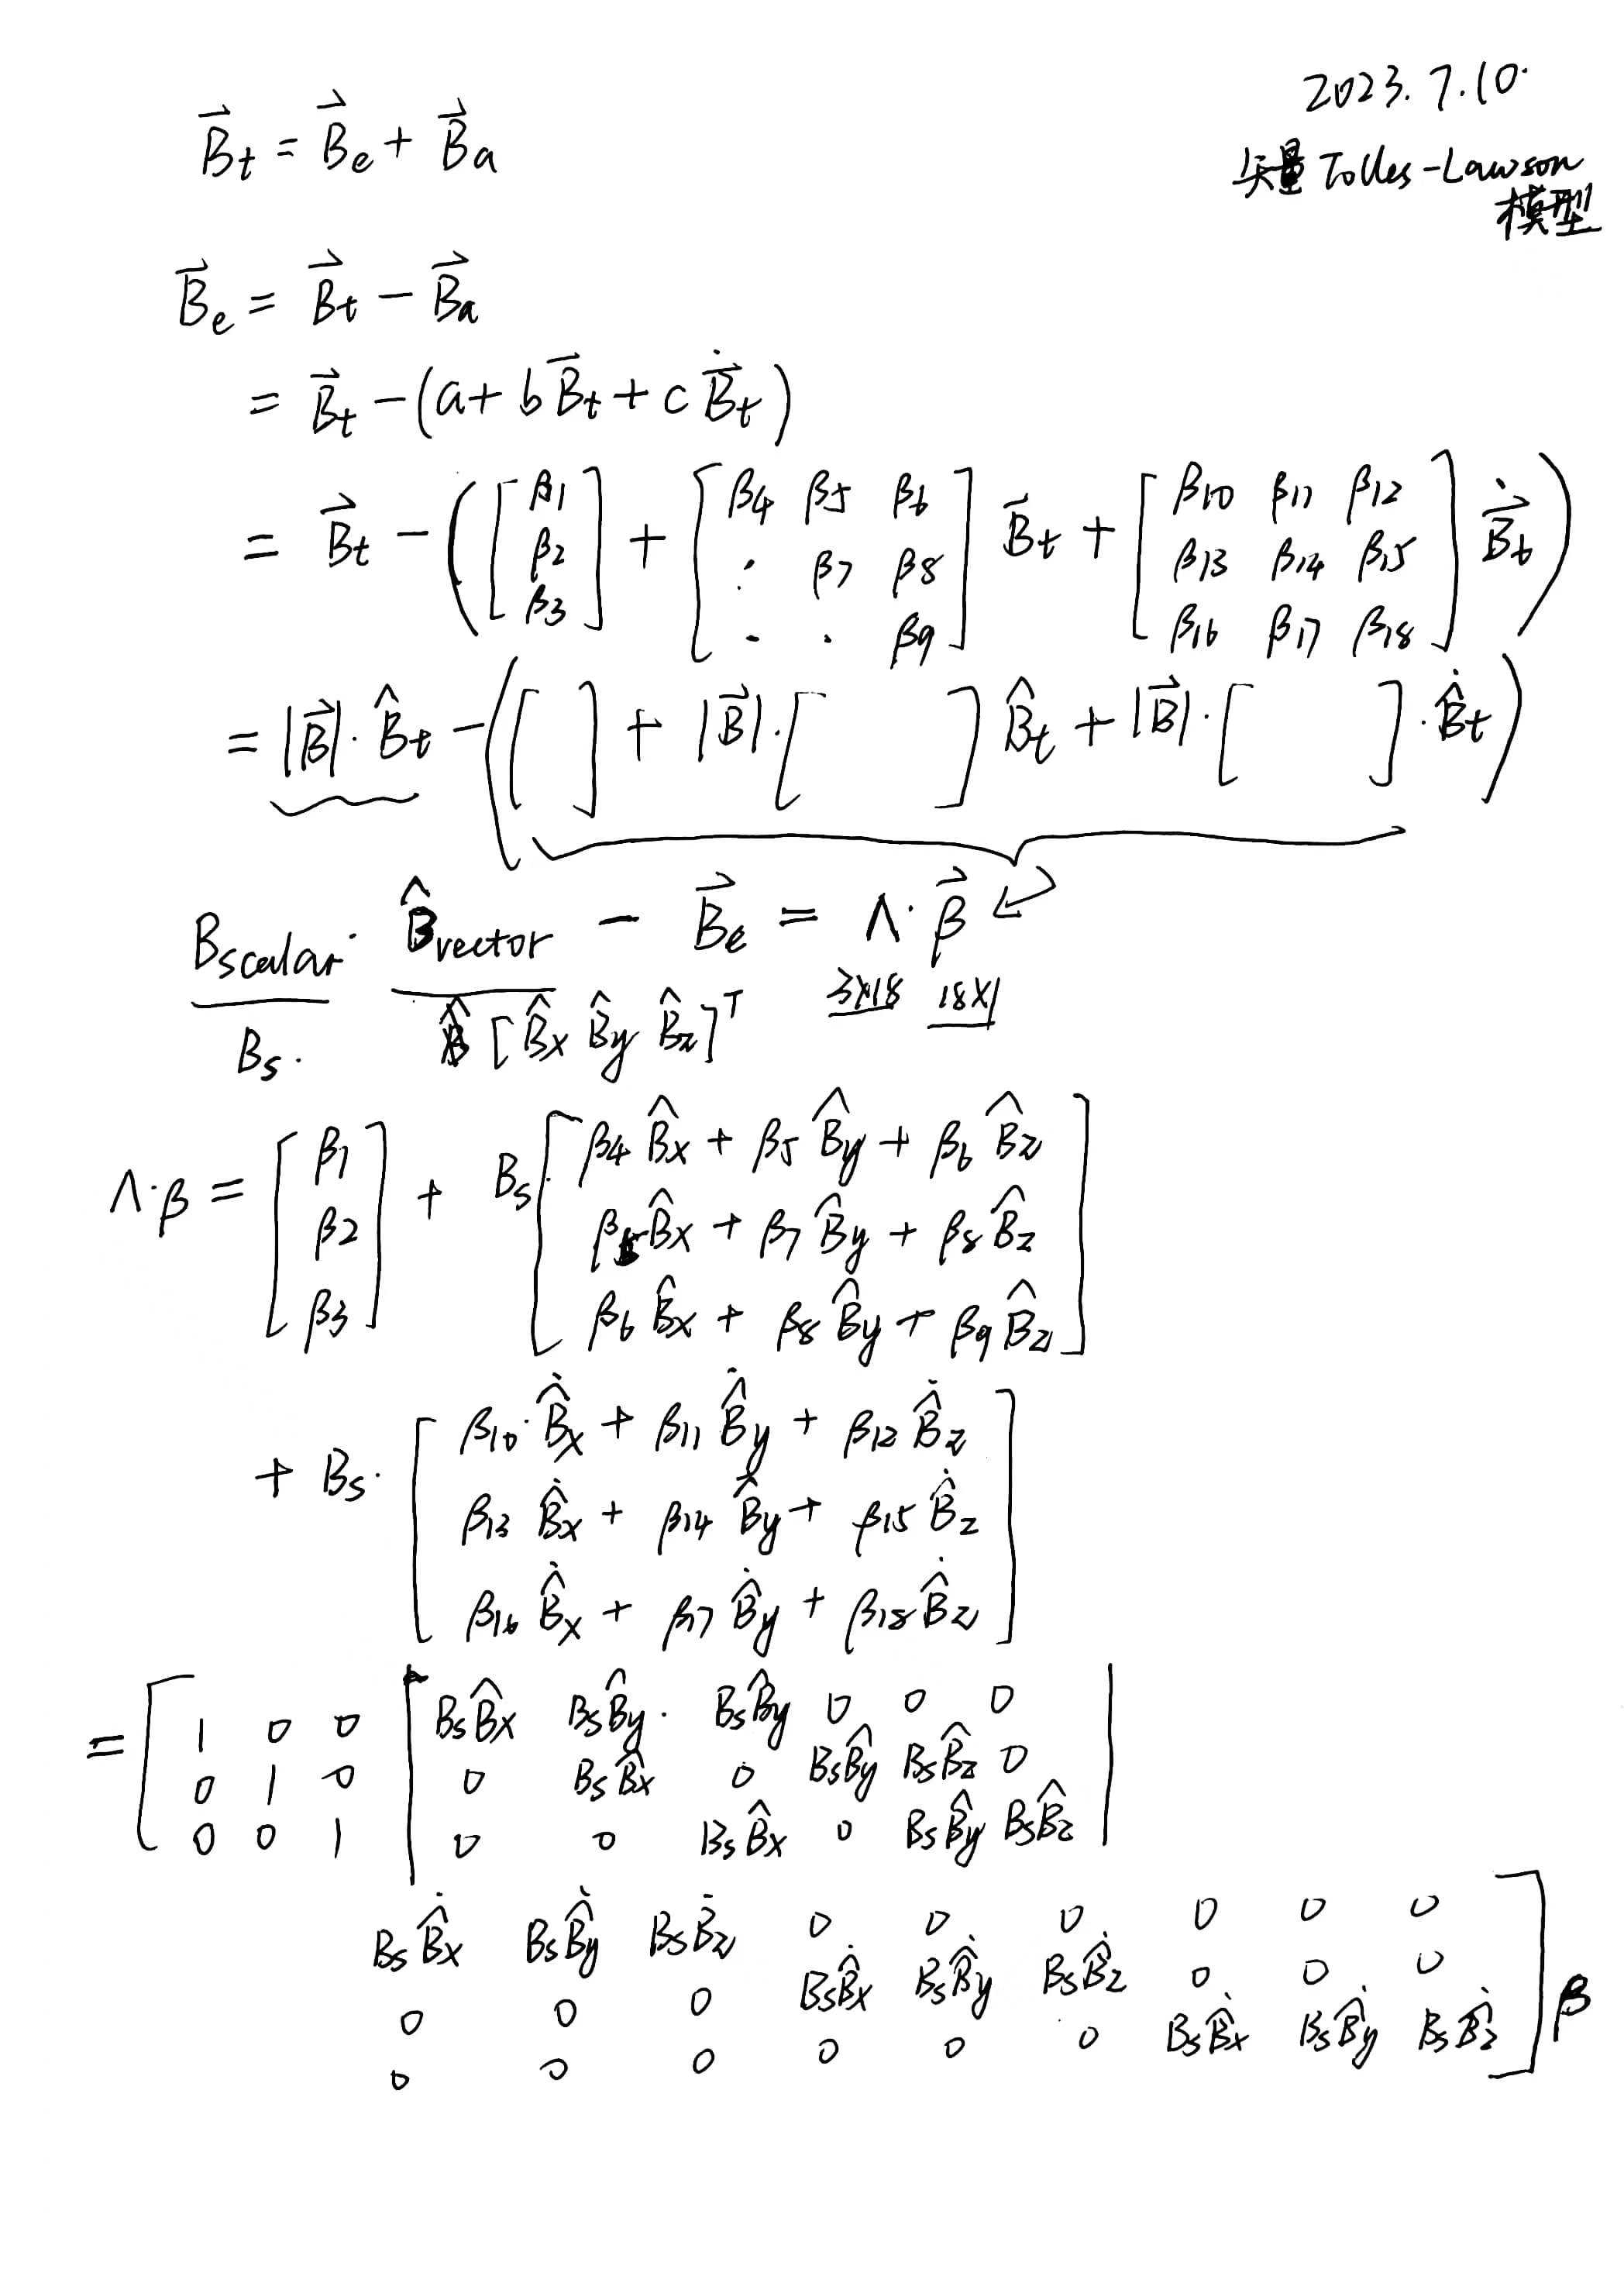 2023.7.10.
矢量Tolles-Lawson
模型
$\vec{B}_t = \vec{B}_e + \vec{B}_a$
$\vec{B}_e = \vec{B}_t - \vec{B}_a$
$= \vec{B}_t - (a + b\vec{B}_t + c\dot{\vec{B}}_t)$
$= \vec{B}_t - \left(\begin{bmatrix} \beta_1 \\ \beta_2 \\ \beta_3 \end{bmatrix} + \begin{bmatrix} \beta_4 & \beta_5 & \beta_6 \\ \cdot & \beta_7 & \beta_8 \\ \cdot & \cdot & \beta_9 \end{bmatrix} \vec{B}_t + \begin{bmatrix} \beta_{10} & \beta_{11} & \beta_{12} \\ \beta_{13} & \beta_{14} & \beta_{15} \\ \beta_{16} & \beta_{17} & \beta_{18} \end{bmatrix} \dot{\vec{B}}_t\right)$
$= |\vec{B}| \cdot \hat{B}_t - \left([\quad] + |\vec{B}| \cdot [\quad] \hat{B}_t + |\vec{B}| \cdot [\quad] \cdot \dot{\hat{B}}_t\right)$
$B_{scalar} \cdot \hat{B}_{vector} - \vec{B}_e = \Lambda \cdot \vec{\beta}$
$B_s.$ $[\hat{B}_x \hat{B}_y \hat{B}_z]^T$ 3×18 18×1
$\Lambda \cdot \beta = \begin{bmatrix} \beta_1 \\ \beta_2 \\ \beta_3 \end{bmatrix} + B_s \begin{bmatrix} \beta_4 \hat{B}_x + \beta_5 \hat{B}_y + \beta_6 \hat{B}_z \\ \beta_5 \hat{B}_x + \beta_7 \hat{B}_y + \beta_8 \hat{B}_z \\ \beta_6 \hat{B}_x + \beta_8 \hat{B}_y + \beta_9 \hat{B}_z \end{bmatrix}$
$+ B_s \cdot \begin{bmatrix} \beta_{10} \cdot \dot{\hat{B}}_x + \beta_{11} \dot{\hat{B}}_y + \beta_{12} \dot{\hat{B}}_z \\ \beta_{13} \dot{\hat{B}}_x + \beta_{14} \dot{\hat{B}}_y + \beta_{15} \dot{\hat{B}}_z \\ \beta_{16} \dot{\hat{B}}_x + \beta_{17} \dot{\hat{B}}_y + \beta_{18} \dot{\hat{B}}_z \end{bmatrix}$
$= \left[\begin{matrix} 1 & 0 & 0 \\ 0 & 1 & 0 \\ 0 & 0 & 1 \end{matrix}\right| \left.\begin{matrix} B_s\hat{B}_x & B_s\hat{B}_y. & B_s\hat{B}_y & 0 & 0 & 0 \\ 0 & B_s\hat{B}_x & 0 & B_s\hat{B}_y & B_s\hat{B}_z & 0 \\ 0 & 0 & B_s\hat{B}_x & 0 & B_s\hat{B}_y & B_s\hat{B}_z \end{matrix}\right|$
$\left.\begin{matrix} B_s\dot{\hat{B}}_x & B_s\dot{\hat{B}}_y & B_s\dot{\hat{B}}_z & 0 & 0 & 0 & 0 & 0 & 0 \\ 0 & 0 & 0 & B_s\dot{\hat{B}}_x & B_s\dot{\hat{B}}_y & B_s\dot{\hat{B}}_z & 0 & 0 & 0 \\ 0 & 0 & 0 & 0 & 0 & 0 & B_s\dot{\hat{B}}_x & B_s\dot{\hat{B}}_y & B_s\dot{\hat{B}}_z \end{matrix}\right] \beta$